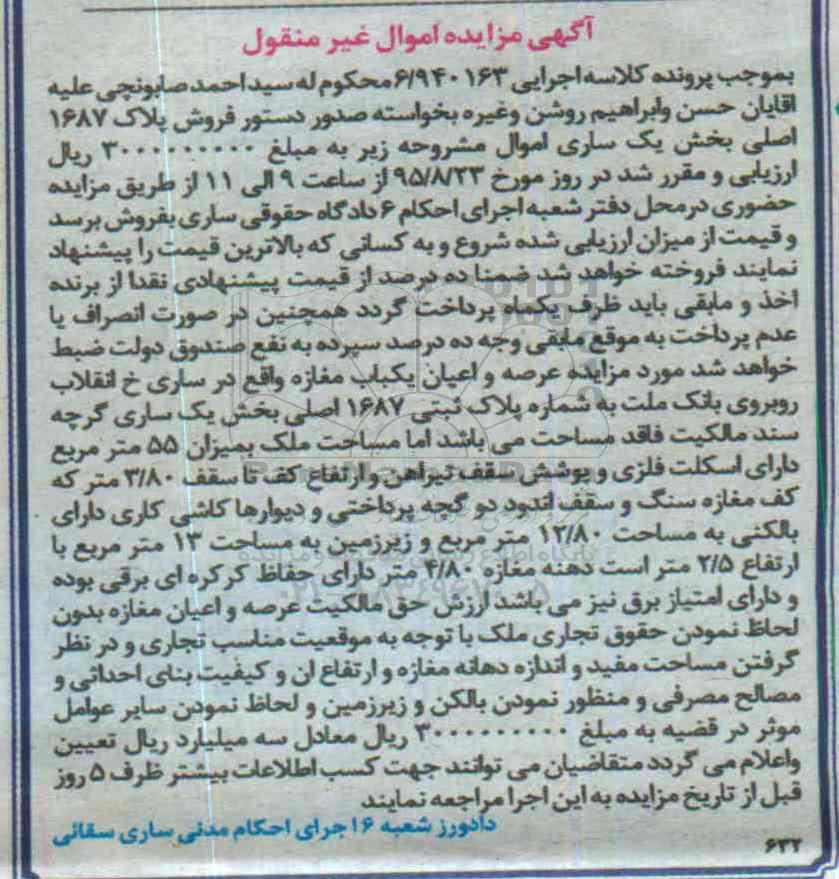 آگهی مزایده اموال غیر منقول
بموجب پرونده کلاسه اجرایی ۶/۹۴۰۱۶۳ محکوم له سید احمد صابونچی علیه
اقایان حسن وابراهیم روشن وغیره بخواسته صدور دستور فروش پلاک ۱۶۸۷
اصلی بخش یک ساری اموال مشروحه زیر به مبلغ ۳۰۰۰۰۰۰۰۰۰ ریال
ارزیابی و مقرر شد در روز مورخ ۹۵/۸/۲۳ از ساعت ۹ الی ۱۱ از طریق مزایده
حضوری درمحل دفتر شعبه اجرای احکام ۶ دادگاه حقوقی ساری بفروش برسد
و قیمت از میزان ارزیابی شده شروع و به کسانی که بالاترین قیمت را پیشنهاد
نمایند فروخته خواهد شد ضمنا ده درصد از قیمت پیشنهادی نقدا از برنده
اخذ و مابقی باید ظرف یکماه پرداخت گردد همچنین در صورت انصراف یا
عدم پرداخت به موقع مابقی وجه ده درصد سپرده به نفع صندوق دولت ضبط
خواهد شد مورد مزایده عرصه و اعیان یکباب مغازه واقع در ساری خ انقلاب
روبروی بانک ملت به شماره پلاک ثبتی ۱۶۸۷ اصلی بخش یک ساری گرچه
سند مالکیت فاقد مساحت می باشد اما مساحت ملک بمیزان ۵۵ متر مربع
دارای اسکلت فلزی و پوشش سقف تیراهن وارتفاع کف تا سقف ۳/۸۰ متر که
کف مغازه سنگ و سقف اندود دو گچه پرداختی و دیوارها کاشی کاری دارای
بالکنی به مساحت ۱۲/۸۰ متر مربع و زیرزمین به مساحت ۱۳ متر مربع با
ارتفاع ۲/۵ متر است دهنه مغازه ۴/۸۰ متر دارای حفاظ کرکره ای برقی بوده
و دارای امتیاز برق نیز می باشد ارزش حق مالکیت عرصه و اعیان مغازه بدون
لحاظ نمودن حقوق تجاری ملک با توجه به موقعیت مناسب تجاری و در نظر
گرفتن مساحت مفید و اندازه دهانه مغازه و ارتفاع ان و کیفیت بنای احداثی و
مصالح مصرفی و منظور نمودن بالکن و زیرزمین و لحاظ نمودن سایر عوامل
موثر در قضیه به مبلغ ۳۰۰۰۰۰۰۰۰۰ ریال معادل سه میلیارد ریال تعیین
واعلام می گردد متقاضیان می توانند جهت کسب اطلاعات بیشتر ظرف ۵ روز
قبل از تاریخ مزایده به این اجرا مراجعه نمایند
دادورز شعبه ۶ اجرای احکام مدنی ساری سقائی
۶۳۲